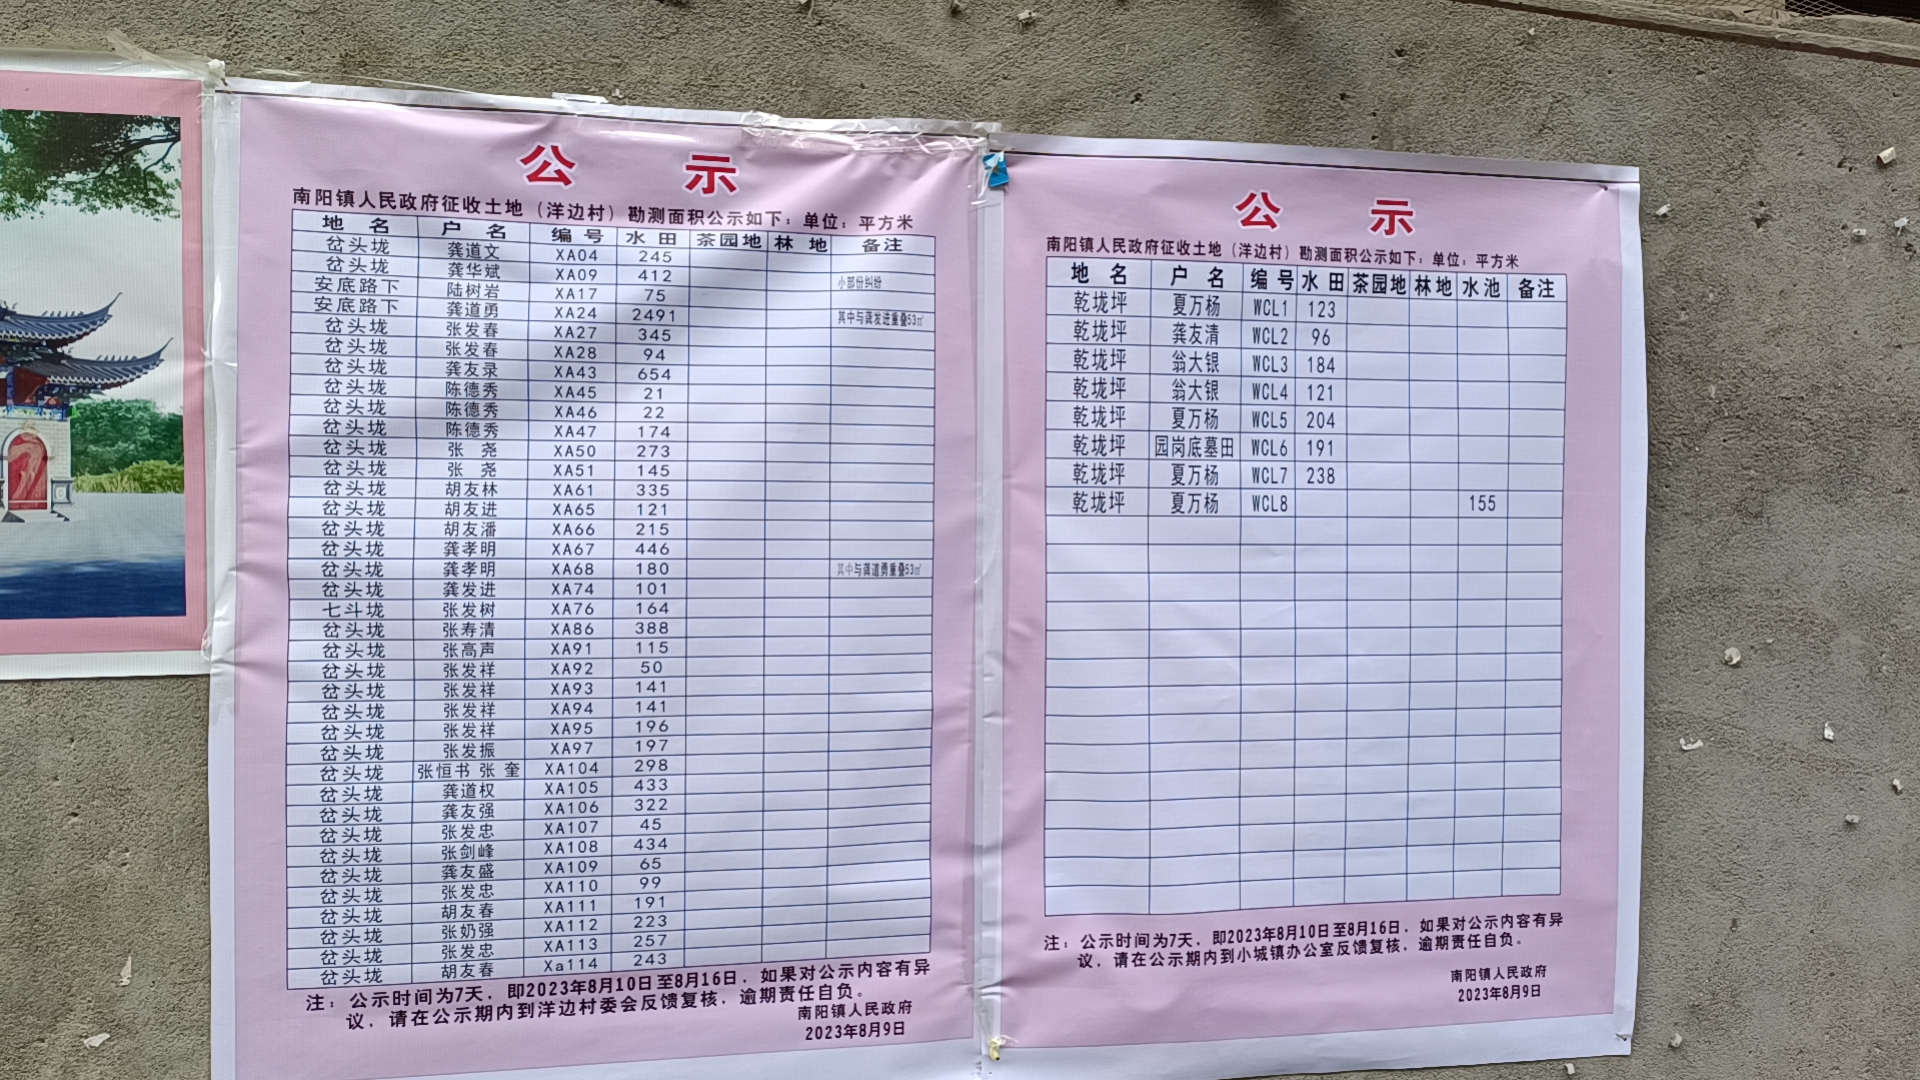 公 示
南阳镇人民政府征收土地（洋边村）勘测面积公示如下：单位：平方米
地 名 户 名 编 号 水 田 茶园地 林 地 备注
岔头垅 龚道文 XA04 245
岔头垅 龚华斌 XA09 412 小部份纠纷
安底路下 陆树岩 XA17 75
安底路下 龚道勇 XA24 2491 其中与龚发进重叠53㎡
岔头垅 张发春 XA27 345
岔头垅 张发春 XA28 94
岔头垅 龚友录 XA43 654
岔头垅 陈德秀 XA45 21
岔头垅 陈德秀 XA46 22
岔头垅 陈德秀 XA47 174
岔头垅 张 尧 XA50 273
岔头垅 张 尧 XA51 145
岔头垅 胡友林 XA61 335
岔头垅 胡友进 XA65 121
岔头垅 胡友潘 XA66 215
岔头垅 龚孝明 XA67 446
岔头垅 龚孝明 XA68 180 其中与龚道勇重叠53㎡
岔头垅 龚发进 XA74 101
七斗垅 张发树 XA76 164
岔头垅 张寿清 XA86 388
岔头垅 张高声 XA91 115
岔头垅 张发祥 XA92 50
岔头垅 张发祥 XA93 141
岔头垅 张发祥 XA94 141
岔头垅 张发祥 XA95 196
岔头垅 张发振 XA97 197
岔头垅 张恒书 张 奎 XA104 298
岔头垅 龚道权 XA105 433
岔头垅 龚友强 XA106 322
岔头垅 张发忠 XA107 45
岔头垅 张剑峰 XA108 434
岔头垅 龚友盛 XA109 65
岔头垅 张发忠 XA110 99
岔头垅 胡友春 XA111 191
岔头垅 张奶强 XA112 223
岔头垅 张发忠 XA113 257
岔头垅 胡友春 Xa114 243
注：公示时间为7天，即2023年8月10日至8月16日，如果对公示内容有异
议，请在公示期内到洋边村委会反馈复核，逾期责任自负。
南阳镇人民政府
2023年8月9日
公 示
南阳镇人民政府征收土地（洋边村）勘测面积公示如下：单位：平方米
地 名 户 名 编 号 水 田 茶园地 林地 水池 备注
乾垅坪 夏万杨 WCL1 123
乾垅坪 龚友清 WCL2 96
乾垅坪 翁大银 WCL3 184
乾垅坪 翁大银 WCL4 121
乾垅坪 夏万杨 WCL5 204
乾垅坪 园岗底墓田 WCL6 191
乾垅坪 夏万杨 WCL7 238
乾垅坪 夏万杨 WCL8 155
注：公示时间为7天，即2023年8月10日至8月16日，如果对公示内容有异
议，请在公示期内到小城镇办公室反馈复核，逾期责任自负。
南阳镇人民政府
2023年8月9日